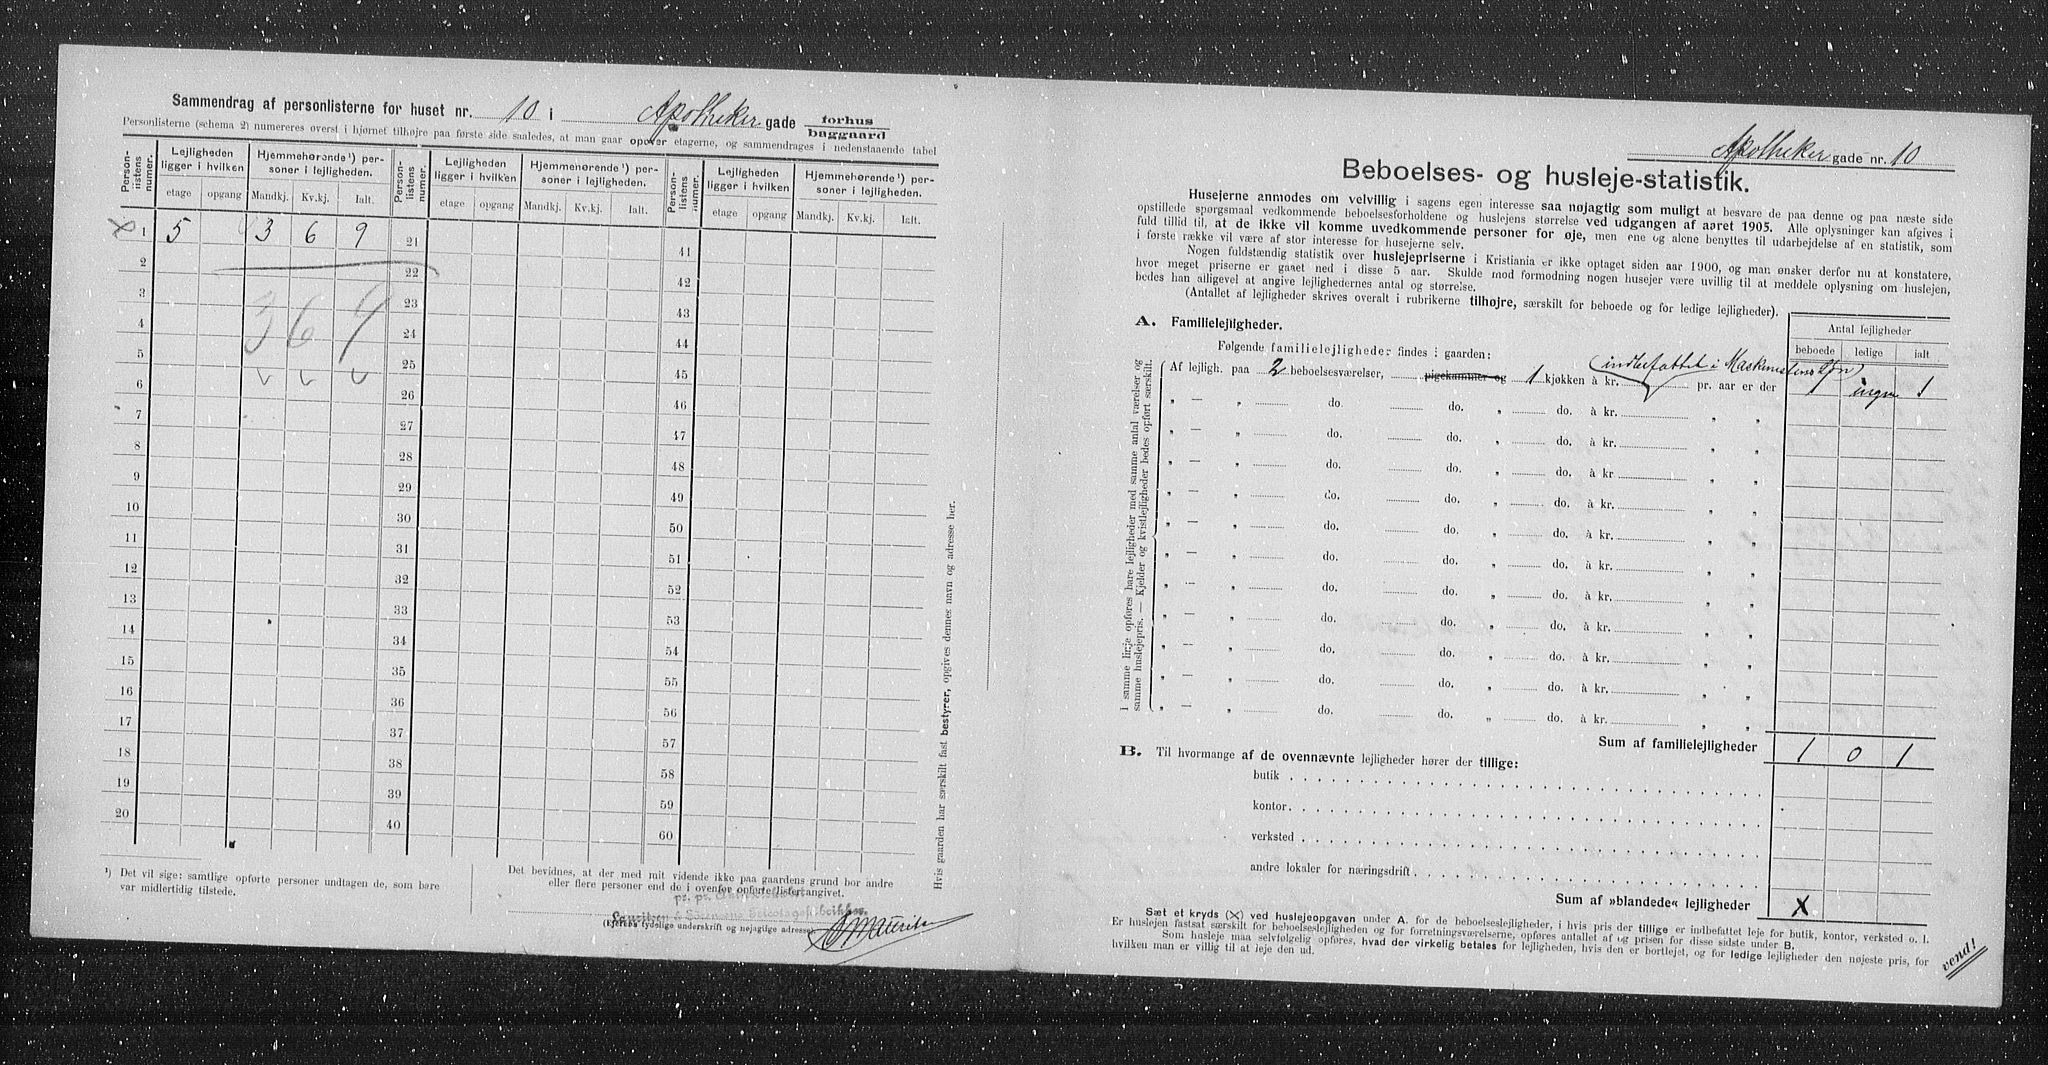 Sammendrag af personlisterne for huset nr. 10 i Apotheker gade forhus
baggaard
Personlisterne (schema 2) numereres øverst i hjørnet tilhøjre paa første side saaledes, at man gaar opover etagerne, og sammendrages i nedenstaaende tabel
Person-listens numer. Lejligheden ligger i hvilken Hjemmehørende¹) personer i lejligheden. Person-listens numer. Lejligheden ligger i hvilken Hjemmehørende¹) personer i lejligheden. Person-listens numer. Lejligheden ligger i hvilken Hjemmehørende¹) personer i lejligheden.
etage opgang Mandkj. Kv.kj. Ialt. etage opgang Mandkj. Kv.kj. Ialt. etage opgang Mandkj. Kv.kj. Ialt.
X 1 5 3 6 9 21 41
2 22 42
3 3 6 9 23 43
4 24 44
5 25 45
6 26 46
7 27 47
8 28 48
9 29 49
10 30 50
11 31 51
12 32 52
13 33 53
14 34 54
15 35 55
16 36 56
17 37 57
18 38 58
19 39 59
20 40 60
¹) Det vil sige: samtlige opførte personer undtagen de, som bare
var midlertidig tilstede.
Det bevidnes, at der med mit vidende ikke paa gaardens grund bor andre
eller flere personer end de i ovenfor opførte lister angivet.
(Ejerens tydelige underskrift og nejagtige adresse).
Hvis gaarden har særskilt fast bestyrer, opgives dennes navn og adresse her.
Apotheker gade nr. 10
Beboelses- og husleje-statistik.
Husejerne anmodes om velvillig i sagens egen interesse saa nøjagtig som muligt at besvare de paa denne og paa næste side
opstillede spørgsmaal vedkommende beboelsesforholdene og huslejens størrelse ved udgangen af aøret 1905. Alle oplysninger kan afgives i
fuld tillid til, at de ikke vil komme uvedkommende personer for øje, men ene og alene benyttes til udarbejdelse af en statistik, som
i første række vil være af stor interesse for husejerne selv.
Nogen fuldstændig statistik over huslejepriserne i Kristiania er ikke optaget siden aar 1900, og man ønsker derfor nu at konstatere,
hvor meget priserne er gaaet ned i disse 5 aar. Skulde mod formodning nogen husejer være uvillig til at meddele oplysning om huslejen,
bedes han alligevel at angive lejlighedernes antal og størrelse.
(Antallet af lejligheder skrives overalt i rubrikerne tilhøjre, særskilt for beboede og for ledige lejligheder).
A. Familielejligheder.
Antal lejligheder
Følgende familielejligheder findes i gaarden:
beboede ledige ialt
indbefattet i
Af lejligh. paa 2 beboelsesværelser, pigekammer og 1 kjøkken à kr. pr. aar er der 1 ingen 1
„ — „ do. do. „ do. à kr. „ „
„ — „ do. do. „ do. à kr. „ „
„ — „ do. do. „ do. à kr. „ „
„ — „ do. do. „ do. à kr. „ „
„ — „ do. do. „ do. à kr. „ „
„ — „ do. do. „ do. à kr. „ „
„ — „ do. do. „ do. à kr. „ „
„ — „ do. do. „ do. à kr. „ „
„ — „ do. do. „ do. à kr. „ „
„ — „ do. do. „ do. à kr. „ „
„ — „ do. do. „ do. à kr. „ „
I samme linje opføres bare lejligheder med samme antal værelser og
samme huslejepris. — Kjelder og kvistlejligheder bedes opført særskilt.
Sum af familielejligheder 1 0 1
B. Til hvormange af de ovennævnte lejligheder hører der tillige:
butik
kontor
verksted
andre lokaler for næringsdrift
Sum af »blandede« lejligheder X
Sæt et kryds (X) ved huslejeopgaven under A. for de beboelseslejligheder, i hvis pris der tillige er indbefattet leje for butik, kontor, verksted o. l.
Er huslejen fastsat særskilt for beboelseslejligheden og for forretningsværelserne, opføres antallet af og prisen for disse sidste under B.
Som husleje maa selvfølgelig opføres, hvad der virkelig betales for lejligheden, hvis den er bortlejet, og for ledige lejligheder den nøjeste pris, for
hvilken man er villig til at leje den ud.
vend!